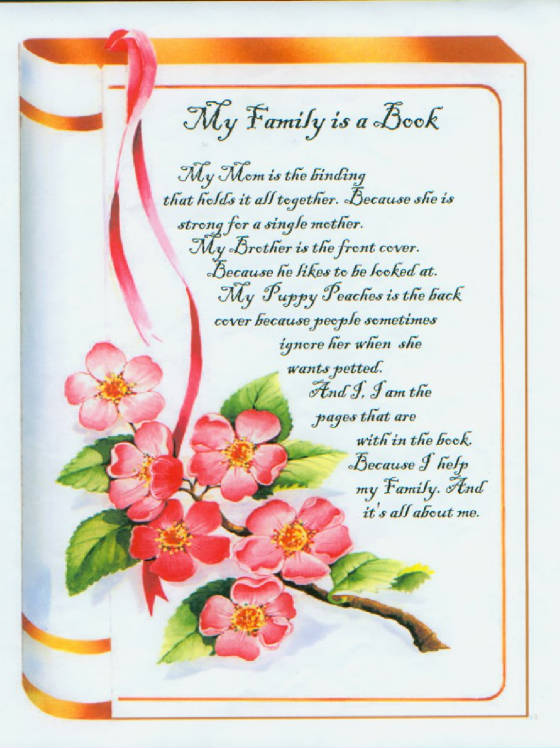 My Family is a Book
My Mom is the binding
that holds it all together. Because she is
strong for a single mother.
My Brother is the front cover.
Because he likes to be looked at.
My Puppy Peaches is the back
cover because people sometimes
ignore her when she
wants petted.
And I, I am the
pages that are
with in the book.
Because I help
my Family. And
it's all about me.